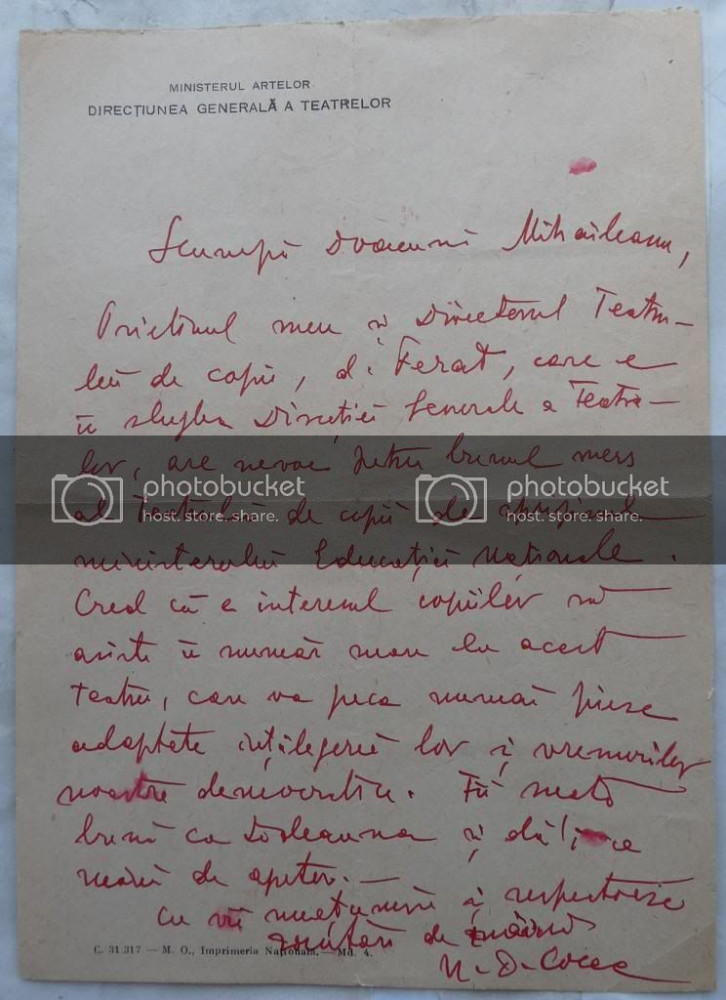 MINISTERUL ARTELOR
DIRECȚIUNEA GENERALĂ A TEATRELOR
Scumpă Doamnă Mihăileanu,
Prietenul meu și Directorul Teatru-
lui de copii, d. Ferat, care e
în slujba Direcției Generale a Teatre-
lor, are nevoe pentru bunul mers
al Teatrului de copii de
ministerului Educației Naționale.
Cred că e interesul copiilor să
asiste în număr mare la acest
teatru, care va juca numai piese
adaptate înțelegerii lor și vremurilor
noastre democratice. Fii
bună ca totdeauna și dă-i
de ajutor. —
Cu vii mulțumiri și respectoase
sărutări de mână
N. D. Cocea
C. 31.317 — M. O., Imprimeria Națională. — Md. 4.
photobucket
host. store. share.
photobucket
host. store. share.